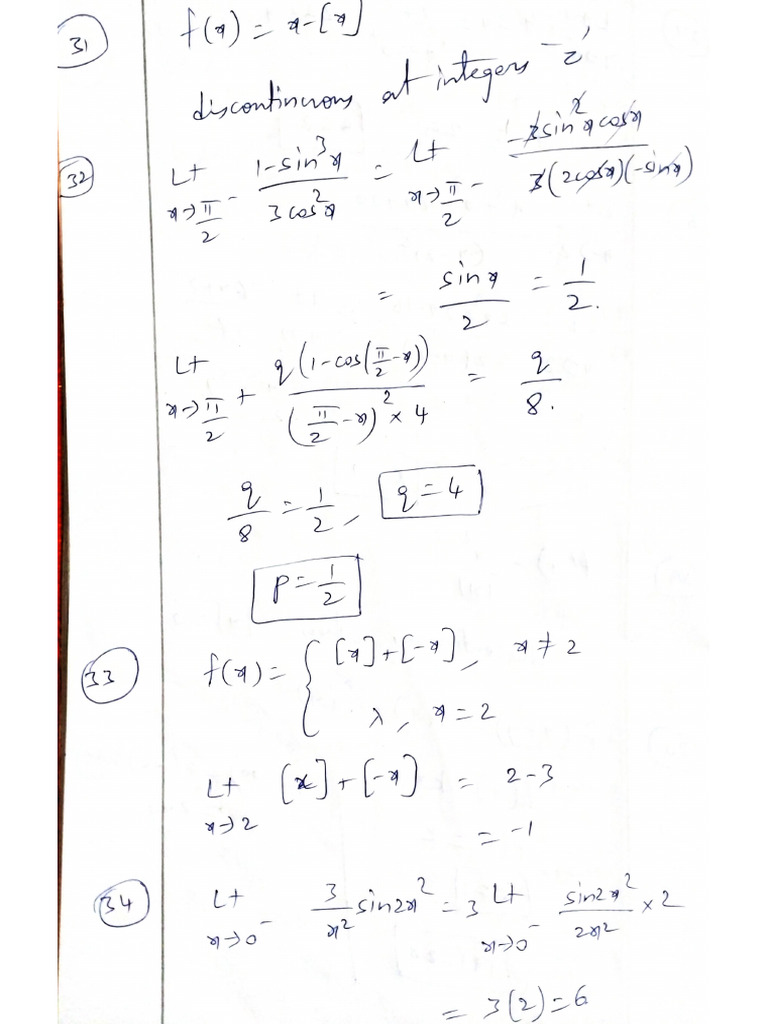 31
f(x) = x-[x]
discontinuous at integers 'Z'
32
Lt x→π/2⁻ (1-sin³x)/(3cos²x) = Lt x→π/2⁻ (-3sin²x cosx)/(3(2cosx)(-sinx))
= sinx/2 = 1/2.
Lt x→π/2+ q(1-cos(π/2-x))/((π/2-x)²×4) = q/8.
q/8 = 1/2, q=4
P=1/2
33
f(x) = { [x]+[-x], x≠2
λ, x=2
Lt x→2 [x]+[-x] = 2-3
= -1
34
Lt x→0⁻ 3/x² sin2x² = 3 Lt x→0⁻ sin2x²/2x² ×2
= 3(2)=6